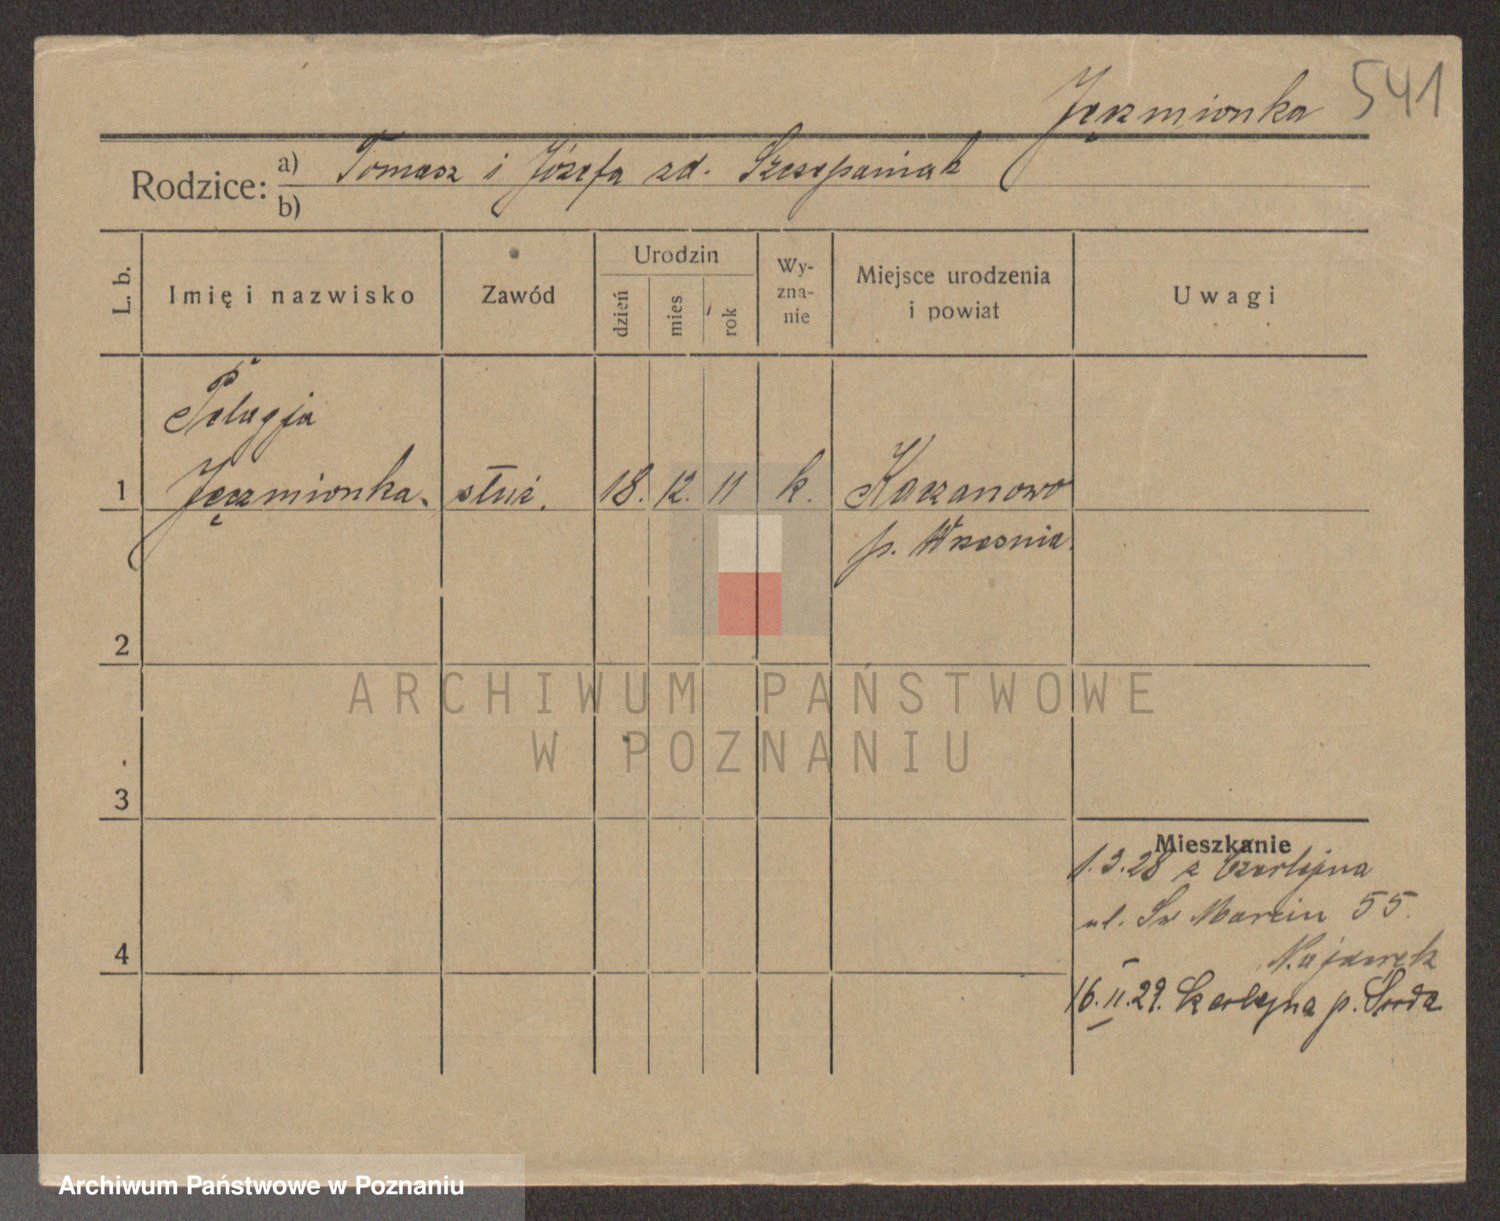 Jęczmionka 541
Rodzice: a) Tomasz i Józefa zd. Szczepaniak
b)
L. b. Imię i nazwisko Zawód Urodzin dzień mies rok Wyznanie Miejsce urodzenia i powiat Uwagi
Pelagja
1 Jęczmionka. służ. 18. 12. 11 k. Kaczanowo
p. Września.
2
ARCHIWUM PAŃSTWOWE
W POZNANIU
3
Mieszkanie
1.3.28 z Czerlejna
ul. Św Marcin 55.
4
16.11.29. Czerlejna p. Środa
Archiwum Państwowe w Poznaniu